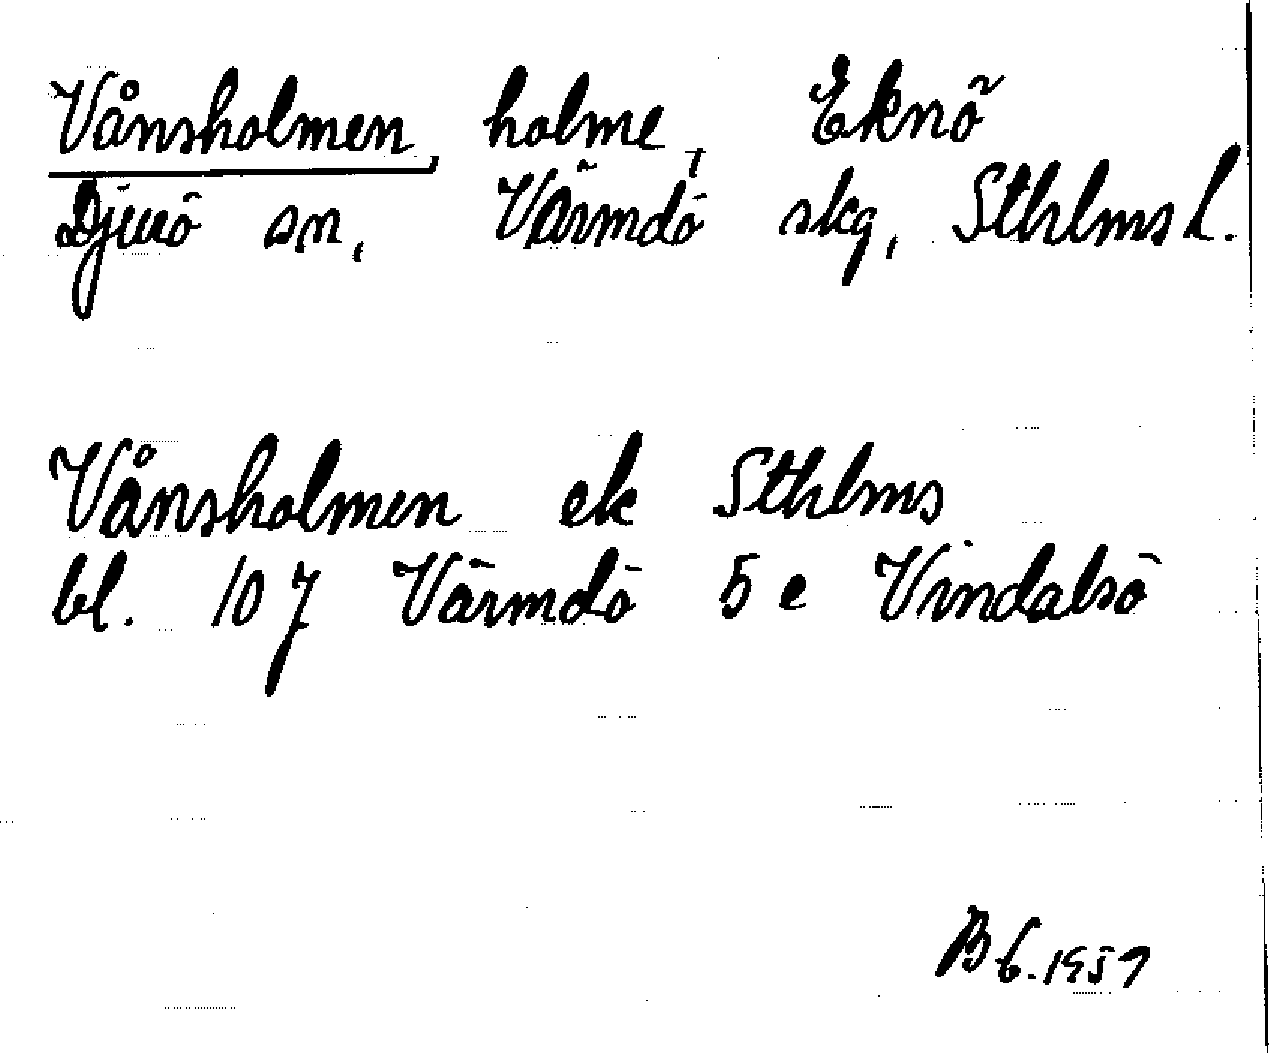 Vånsholmen, holme, Eknö
Djurö sn, Värmdö skg, Sthlms l.
Vånsholmen ek Sthlms
bl. 107 Värmdö 5 e Vindalsö
B6.1957